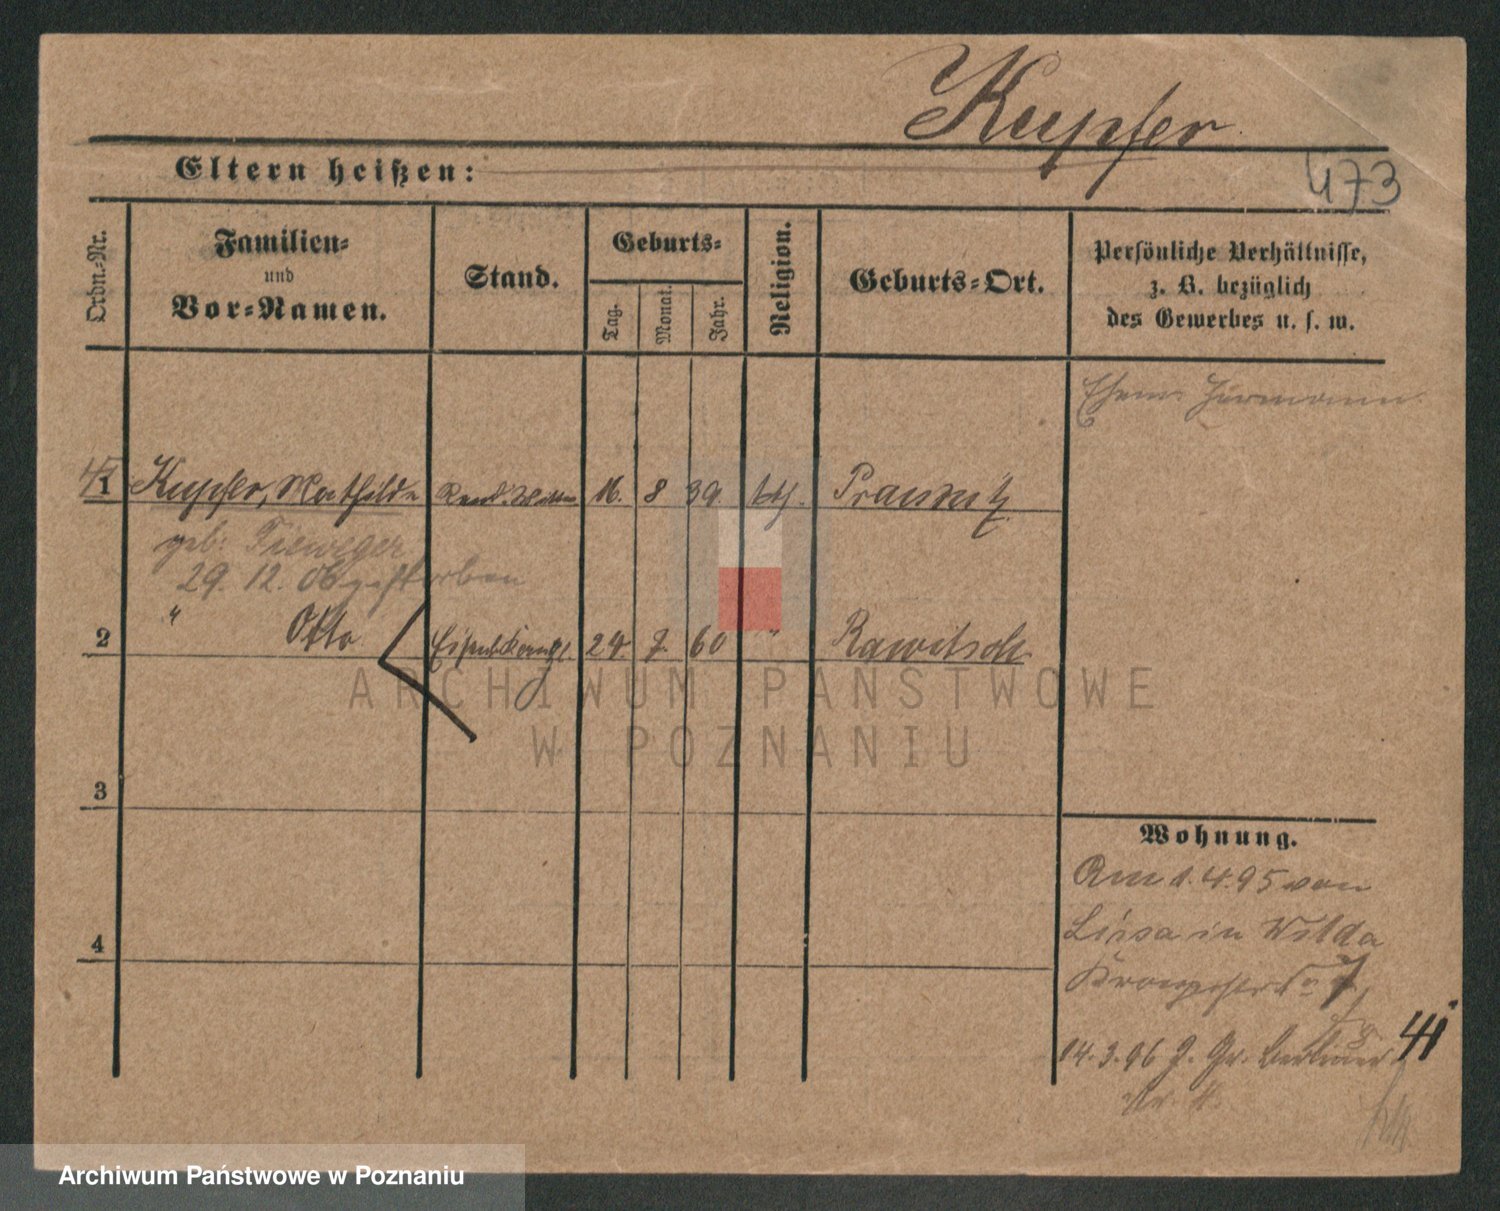 Kupfer
Eltern heißen:
473
Ordn.-Nr.
Familien=
und
Vor=Namen.
Stand.
Geburts=
Tag.
Monat.
Jahr.
Religion.
Geburts=Ort.
Persönliche Verhältnisse,
z. B. bezüglich
des Gewerbes u. s. w.
1 Kupfer, Mathilde 16. 8 39. kth. Prausnitz
geb. Tieweger
29. 12. 06 gestorben
2 " Otto 29. 7. 60 " Rawitsch
3
4
Wohnung.
Am 1.4.95 von
Lissa in Wilda
Kronprinzenstr. 7
14.3.96 J. Gr. Berliner 41
ARCHIWUM PAŃSTWOWE
W POZNANIU
Archiwum Państwowe w Poznaniu